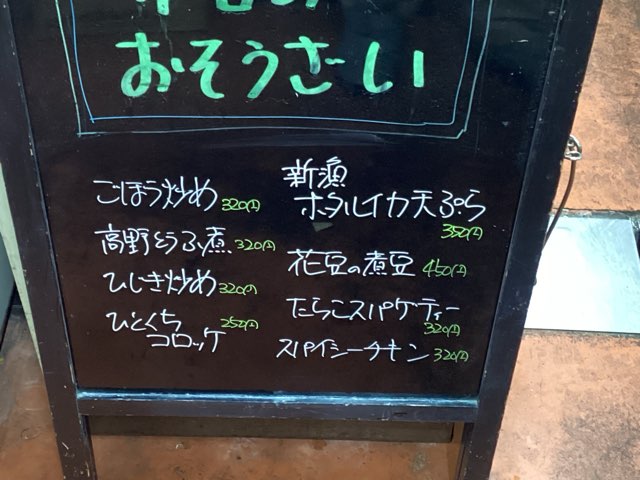 おそうざい
ごぼう炒め 320円
高野とうふ煮 320円
ひじき炒め 320円
ひとくち
コロッケ 250円
新漁
ホタルイカ天ぷら
350円
花豆の煮豆 450円
たらこスパゲティー
320円
スパイシーチキン 320円